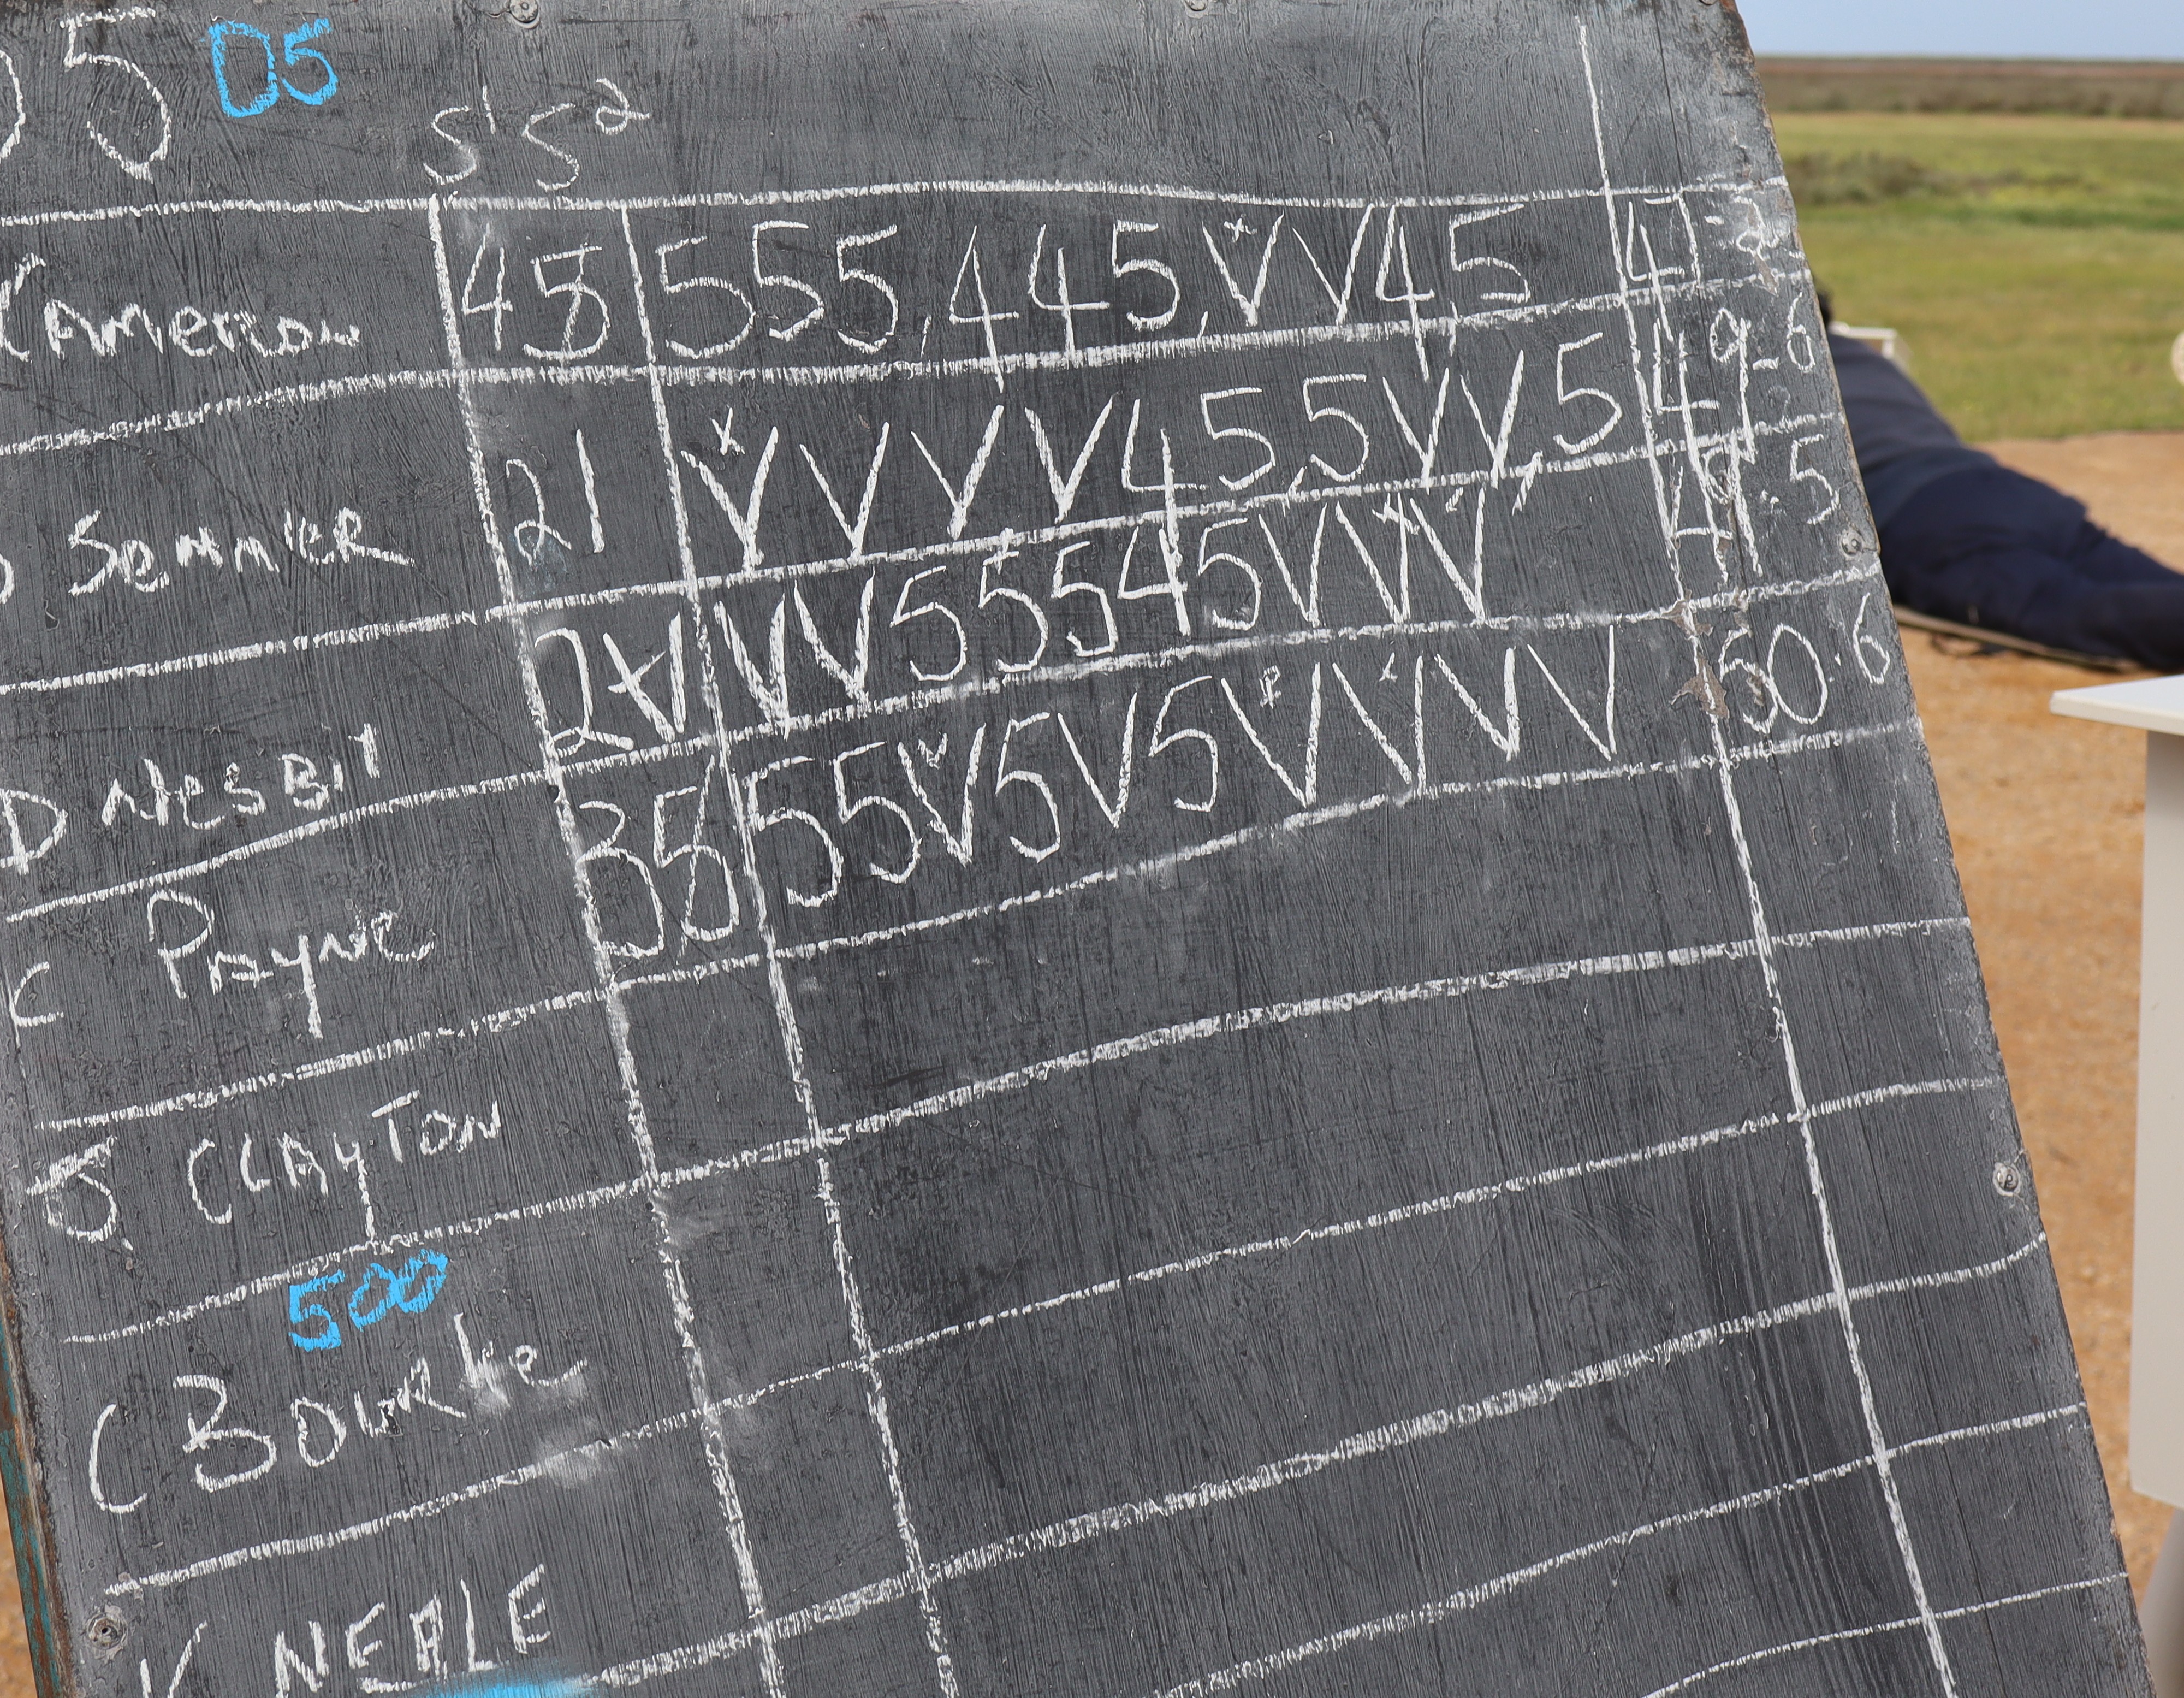 5 D5
S¹ S²
Cameron 4 5 5 5 5, 4 4 5, V V 4, 5 47-2
Semmler 2 1 V V V V 4 5, 5 V V, 5 49-6
D Nesbit 2 V V V 5 5 5 4 5 V V V 49.5
C Payne 3 5 5 5 V 5 V 5 V V V V 50.6
J CLAYTON
500
C BOURke
K NEALE